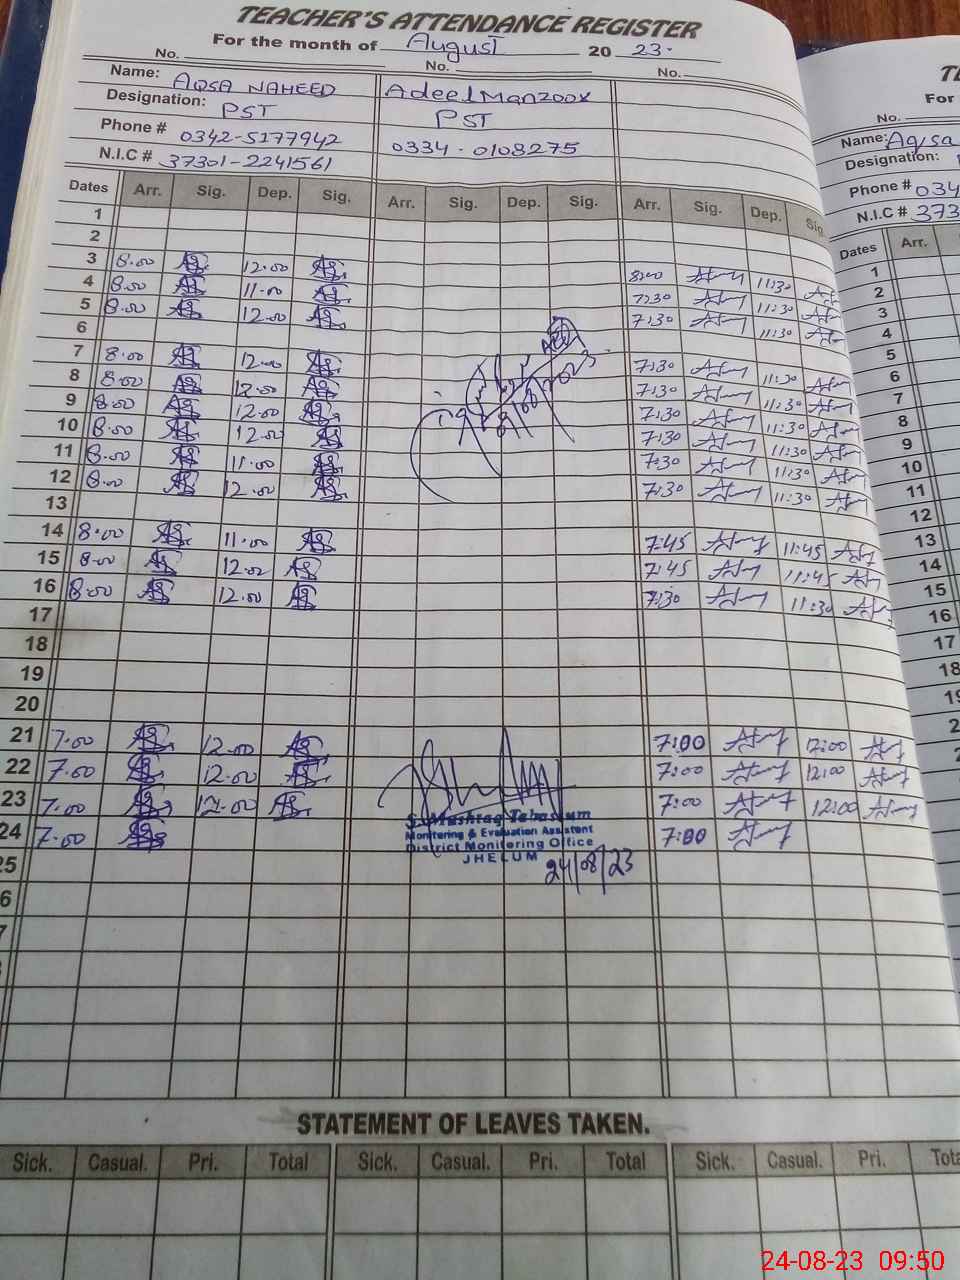 TEACHER'S ATTENDANCE REGISTER
For the month of August 20 23.
No. No. No.
Name: AQSA NAHEED Adeel Manzoor
Designation: PST PST
Phone # 0342-5177942 0334-0108275
N.I.C # 37301-2241561
Dates Arr. Sig. Dep. Sig. Arr. Sig. Dep. Sig. Arr. Sig. Dep. Sig.
1
2
3 8.00 12.00 8:00 11:30
4 8.00 11.00 7:30 11:30
5 8.00 12.00 7:30 11:30
6
7 8.00 12.00 7:30 11:30
8 8.00 12.00 7:30 11:30
9 8.00 12.00 7:30 11:30
10 8.00 12.00 7:30 11:30
11 8.00 11.00 7:30 11:30
12 8.00 12.00 7:30 11:30
13
14 8.00 11.00 7:45 11:45
15 8.00 12.00 7:45 11:45
16 8.00 12.00 7:30 11:30
17
18
19
20
21 7.00 12.00 7:00 12:00
22 7.00 12.00 7:00 12:00
23 7.00 12.00 7:00 12:00
24 7.00 7:00
25
S. Mushtaq Tabassum
Monitoring & Evaluation Assistant
District Monitoring Office
JHELUM
24/08/23
STATEMENT OF LEAVES TAKEN.
Sick. Casual. Pri. Total Sick. Casual. Pri. Total Sick. Casual. Pri.
For
No.
Name: Aqsa
Designation:
Phone # 034
N.I.C # 373
Dates Arr.
1
2
3
4
5
6
7
8
9
10
11
12
13
14
15
16
17
18
24-08-23 09:50